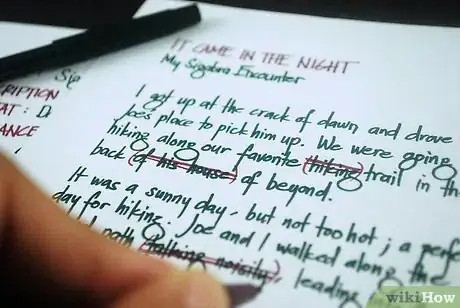 RIPTION
TAT: D
ANCE
IT CAME IN THE NIGHT
My Sigabra Encounter
I got up at the crack of dawn and drove
Joe's place to pick him up. We were going
hiking along our favorite (hiking) trail in th
back (of his house) of beyond.
It was a sunny day, but not too hot; a perf
day for hiking. Joe and I walked along th
path (talking noisily), leading
wikiHow